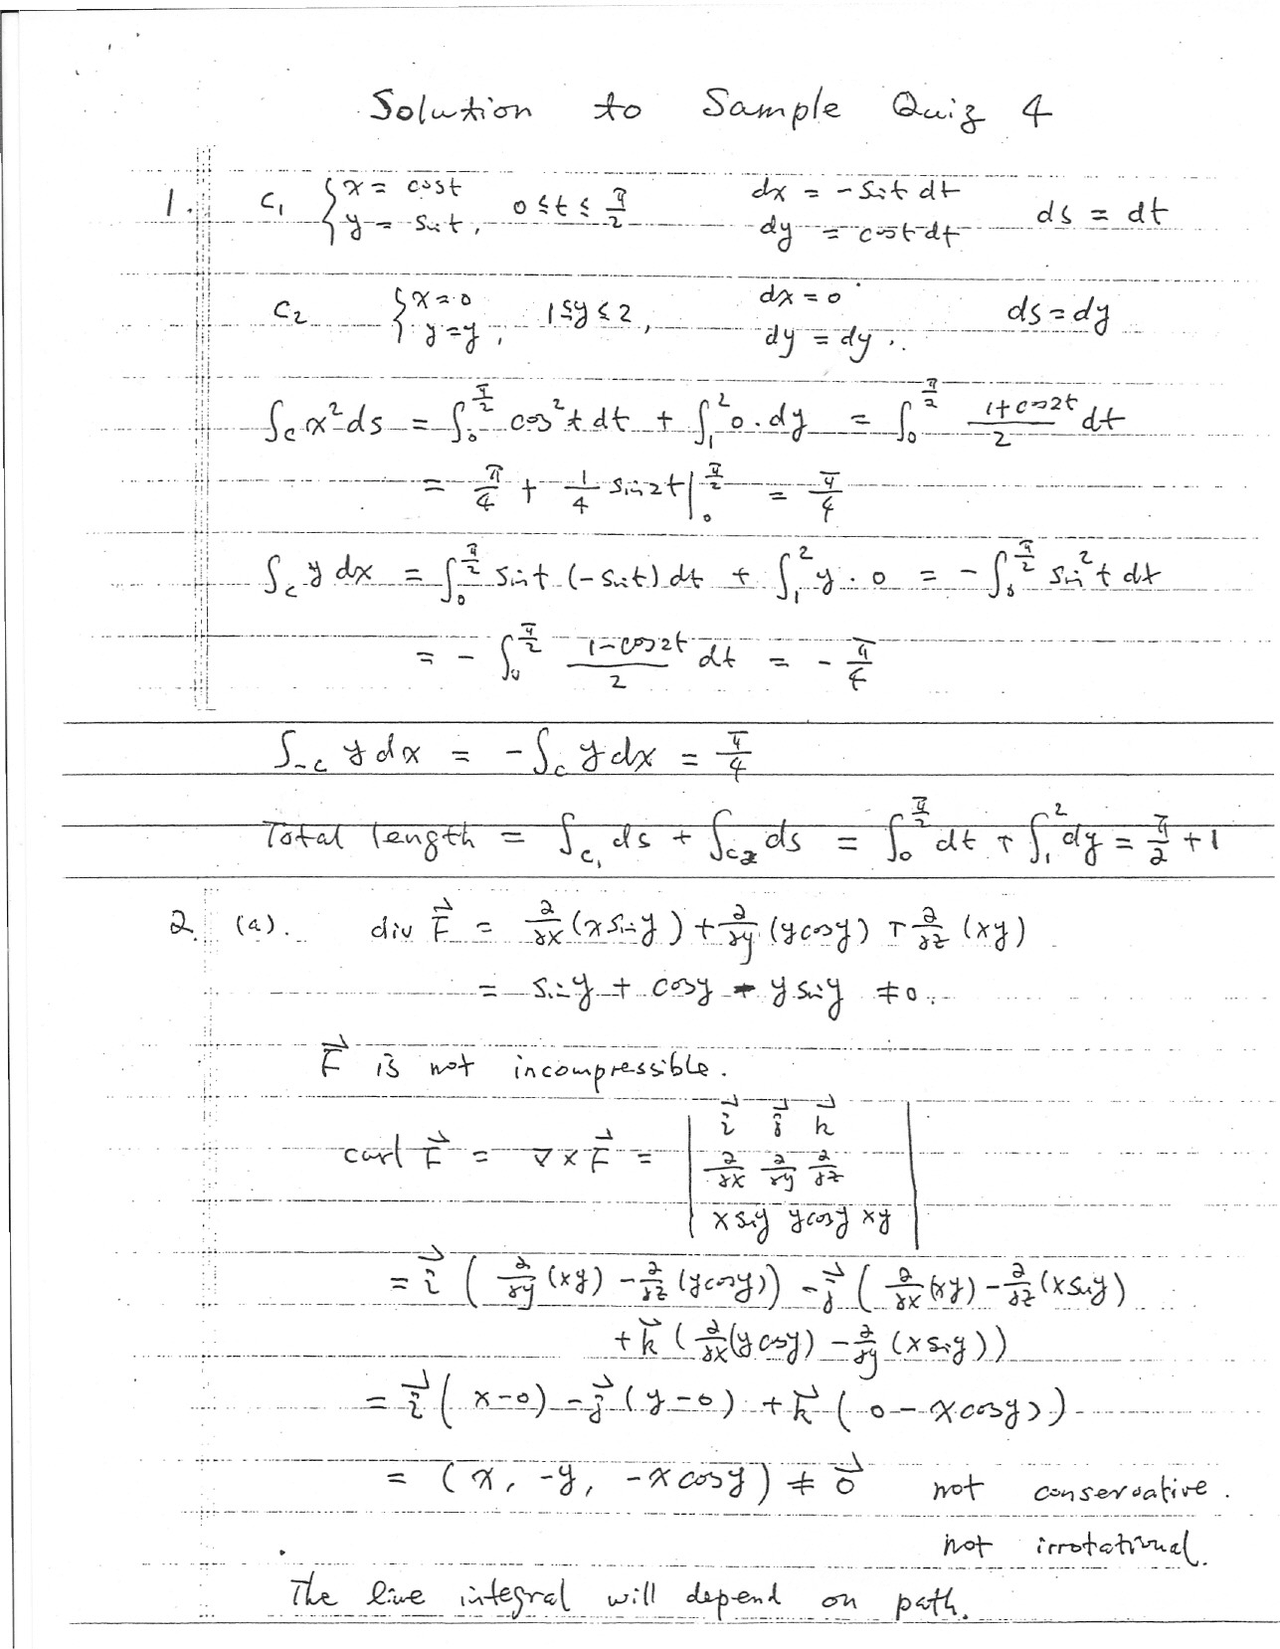 Solution to Sample Quiz 4
1. C₁ { x = cost, y = sint, 0 ≤ t ≤ π/2 dx = -sint dt dy = cost dt ds = dt
C₂ { x = 0, y = y, 1 ≤ y ≤ 2, dx = 0 dy = dy. ds = dy
∫_C x² ds = ∫₀^{π/2} cos²t dt + ∫₁² 0 · dy = ∫₀^{π/2} (1+cos2t)/2 dt
= π/4 + 1/4 sin2t |₀^{π/2} = π/4
∫_C y dx = ∫₀^{π/2} sint (-sint) dt + ∫₁² y · 0 = -∫₀^{π/2} sin²t dt
= -∫₀^{π/2} (1-cos2t)/2 dt = -π/4
∫_{-C} y dx = -∫_C y dx = π/4
Total length = ∫_{C₁} ds + ∫_{C₂} ds = ∫₀^{π/2} dt + ∫₁² dy = π/2 + 1
2. (a). div F⃗ = ∂/∂x (x siny) + ∂/∂y (y cosy) + ∂/∂z (xy)
= siny + cosy - y siny ≠ 0.
F⃗ is not incompressible.
curl F⃗ = ∇ × F⃗ = | i⃗ j⃗ k⃗
∂/∂x ∂/∂y ∂/∂z
x siny y cosy xy |
= i⃗ ( ∂/∂y (xy) - ∂/∂z (y cosy)) - j⃗ ( ∂/∂x (xy) - ∂/∂z (x siny)
+ k⃗ ( ∂/∂x (y cosy) - ∂/∂y (x siny))
= i⃗ ( x-0) - j⃗ (y-0) + k⃗ ( 0 - x cosy))
= (x, -y, -x cosy) ≠ 0⃗ not conservative.
not irrotational.
The line integral will depend on path.